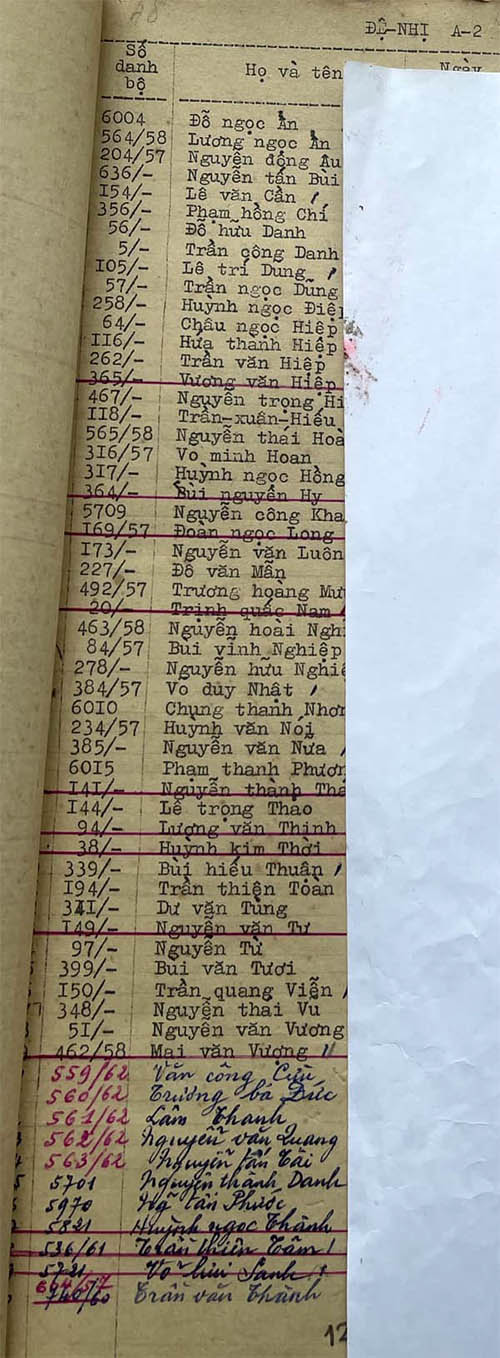 ĐỆ-NHỊ A-2
Số danh bộ Họ và tên Ngày
6004 Đỗ ngọc Ẩn
564/58 Lương ngọc Ẩn
204/57 Nguyễn đông Âu
636/- Nguyễn tấn Bùi
I54/- Lê văn Cần
356/- Phạm hồng Chí
56/- Đỗ hữu Danh
5/- Trần công Danh
I05/- Lê trí Dung
57/- Trần ngọc Dũng
258/- Huỳnh ngọc Điệp
64/- Châu ngọc Hiệp
II6/- Hứa thành Hiệp
262/- Trần văn Hiệp
365/- Vương văn Hiệp
467/- Nguyễn trọng Hi
II8/- Trần-xuân-Hiếu
565/58 Nguyễn thái Hoà
3I6/57 Vo minh Hoan
3I7/- Huỳnh ngọc Hồng
364/- Bùi nguyên Hy
5709 Nguyễn công Kha
I69/57 Đoàn ngọc Long
I73/- Nguyễn văn Luôn
227/- Đỗ văn Mẫn
492/57 Trương hoàng Mư
20/- Trịnh quốc Nam
463/58 Nguyễn hoài Ngh
84/57 Bùi vĩnh Nghiệp
278/- Nguyễn hữu Nghiệ
384/57 Vo duy Nhật
60I0 Chung thanh Nhơn
234/57 Huỳnh văn Nói
385/- Nguyễn văn Nưa
60I5 Phạm thanh Phươn
I4I/- Nguyễn thành Th
I44/- Lê trọng Thao
94/- Lương văn Thịnh
38/- Huỳnh kim Thời
339/- Bùi hiếu Thuận
I94/- Trần thiện Toàn
34I/- Dư văn Tùng
I49/- Nguyễn văn Tư
97/- Nguyễn Từ
399/- Bùi văn Tươi
I50/- Trần quang Viễn
348/- Nguyễn thai Vu
5I/- Nguyễn văn Vương
462/58 Mai văn Vượng
559/62 Văn công Cửu
560/62 Trương bá Đức
561/62 Lâm Thanh
562/62 Nguyễn văn Quang
563/62 Nguyễn tấn Tài
5701 Nguyễn thành Danh
5970 Ngô tấn Phước
5821 Huỳnh ngọc Thành
536/61 Trần thiện Tâm
5721 Võ hữu Sanh
Trần văn Thành
12